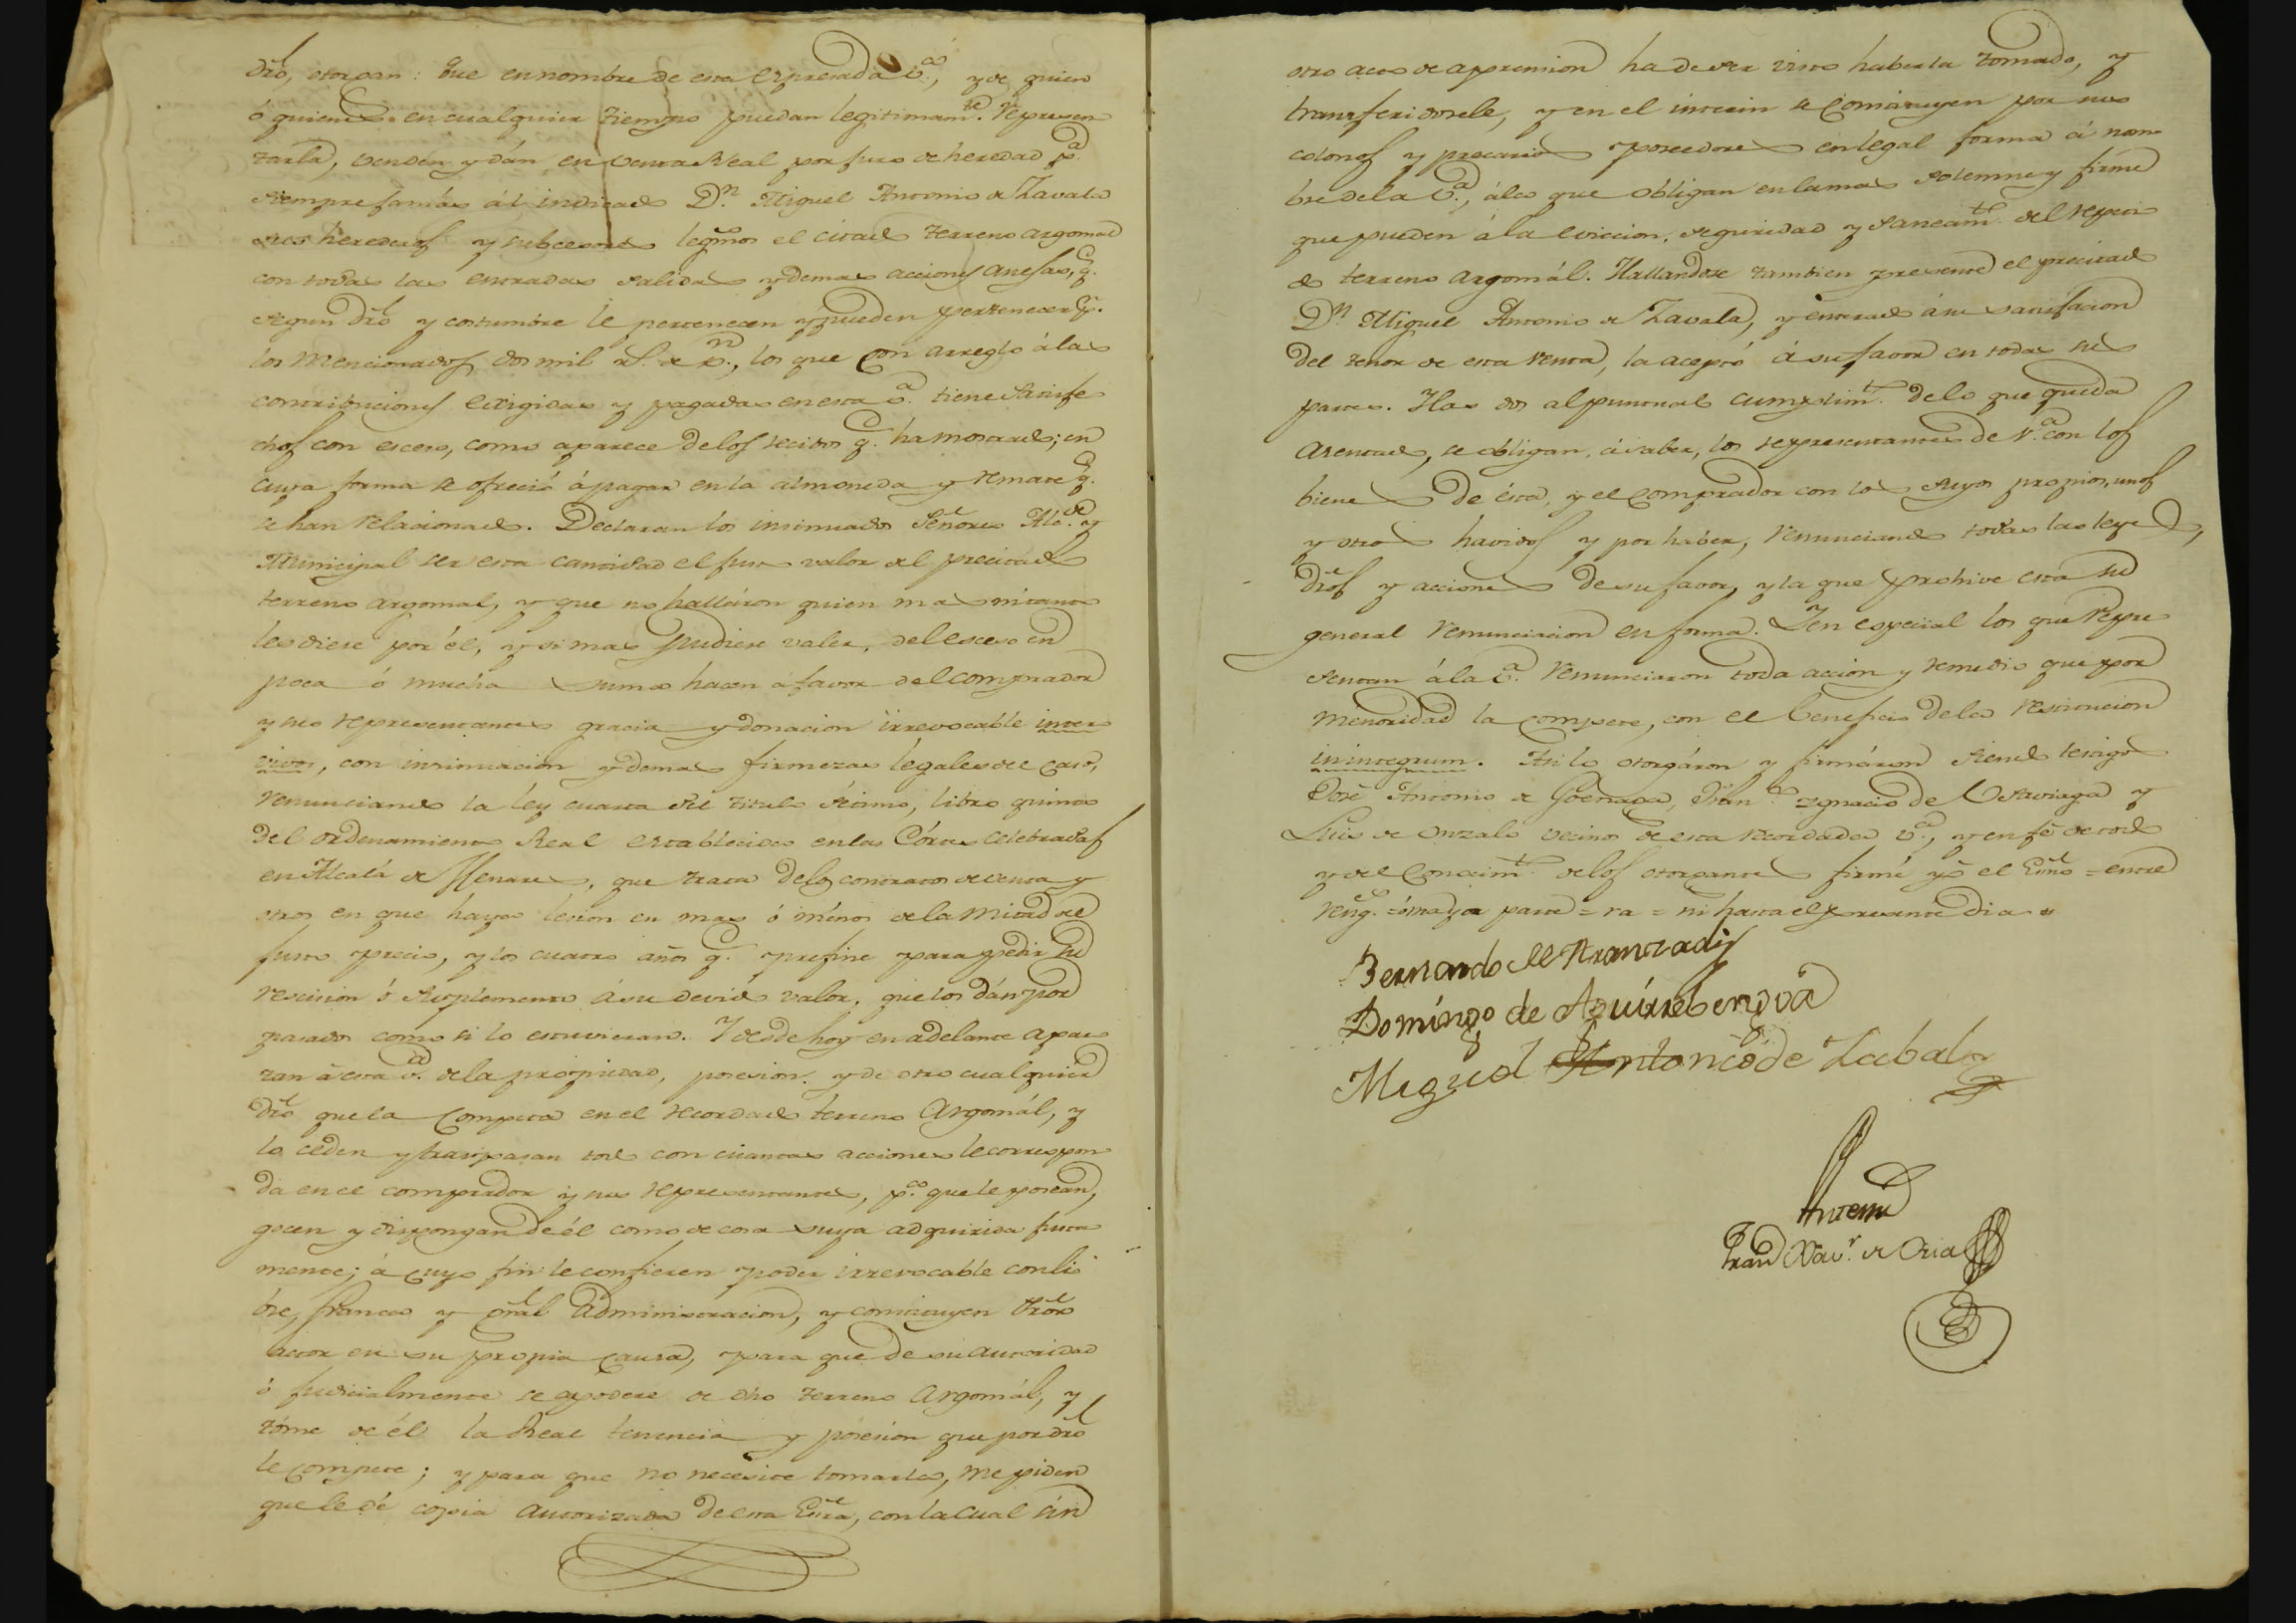 dr̃o, otorgan: Que en nombre de esta Expresada V.ª, y de quien
ó quienes en cualquier tiempo puedan legitimam.te represen
tarla, venden y dán en Venta Real por juro de heredad p.ª
siempre jamás ál indicado D.n Miguel Antonio de Zavala
sus herederos y subcesores legm̃os el citado terreno argomal
con todas las entradas salidas y demas acciones anesas, q.e
segun dr̃o y costumbre le pertenecen y pueden pertenecer p.r
los mencionados dos mil r.s de v.n, los que con arreglo á las
contribuciones exigidas y pagadas en esta v.ª tiene satisfe
chos con esceso, como aparece de los recibos q.e ha mostrado; en
cuya forma se ofreció á pagar en la almoneda y remate q.e
se han relacionado. Declaran los insinuados Señores Alc.de y
Municipal ser esta cantidad el justo valor del precitado
terreno argomal, y que no halláron quien mas ni tanto
les diese por él, y si mas pudiese valer, del esceso en
poca ó mucha suma hacen á favor del comprador
y sus representantes gracia y donacion irrevocable inter
vivos, con insinuacion y demas firmezas legales del caso,
renunciando la ley cuarta del titulo séptimo, libro quinto
del ordenamiento Real establecida en las Córtes celebradas
en Alcalá de Henares, que trata de los contratos de venta y
otros en que haya lesion en mas ó ménos de la mitad del
justo precio, y los cuatro años q.e prefine para pedir su
rescision ó suplemento á su devido valor, que los dán por
pasados como si lo estuvieran. Y desde hoy en adelante apar
tan á esta v.ª de la propiedad, posesion, y de otro cualquier
dr̃o que la competa en el recordado terreno Argomál, y
lo ceden y traspasan todo con cuantas acciones le correspon
da en el comprador y sus representantes, p.ª que le posean,
gocen y dispongan de él como de cosa suya adquirida justa
mente; á cuyo fin le confieren poder irrevocable con li
bre, franca y gr̃al Administracion, y constituyen Pr̃or
actor en su propia causa, para que de su autoridad
ó judicialmente se apodere de dho terreno Argomál, y
tóme de él la Real tenencia y posesion que por dr̃o
le compete; y para que no necesite tomarla, me piden
que le dé copia autorizada de esta Esc̃ra, con la cual sin
otro acto de aprension ha de ser visto haberla tomado, y
transferidosele, y en el interin se constituyen por sus
colonos y precarios poseedores en legal forma á nom
bre de la V.ª, á lo que obligan en la mas solemne y firme
que pueden á la eviccion, seguridad y saneam.to del referi
do terreno argomál. Hallandose tambien presente el precitado
D.n Miguel Antonio de Zavala, y enterado á su satisfacion
del tenor de esta Venta, la aceptó á su favor en todas sus
partes. Y las dos al puntual cumplim.to de lo que queda
asentado, se obligan, á saber, los representantes de V.ª con los
bienes de ésta, y el comprador con los suyos propios, unos
y otros havidos y por haber, renunciando todas las leyes,
dr̃os y acciones de su favor, y la que prohive esta su
general renunciacion en forma. Y en especial los que repre
sentan á la V.ª renunciaron toda acción y remedio que por
menoridad la compete, con el beneficio de la restitucion
in integrum. Asi lo otorgáron y firmáron siendo testigos
José Antonio de Goenaga, Ignacio de y
Luis de Onzalo vecinos de esta recordada v.ª, y en fé de todo
y del conocim.to de los otorgantes firmé yó el Esno = entre
reng.s = ó mayor parte = ra = ni hasta el presente dia =
Bernardo de Aranzadi
Domingo de Aguirrebengoa
Miguel Antonio de Zabala
Antemi
Fran.co Xav.r de Oria